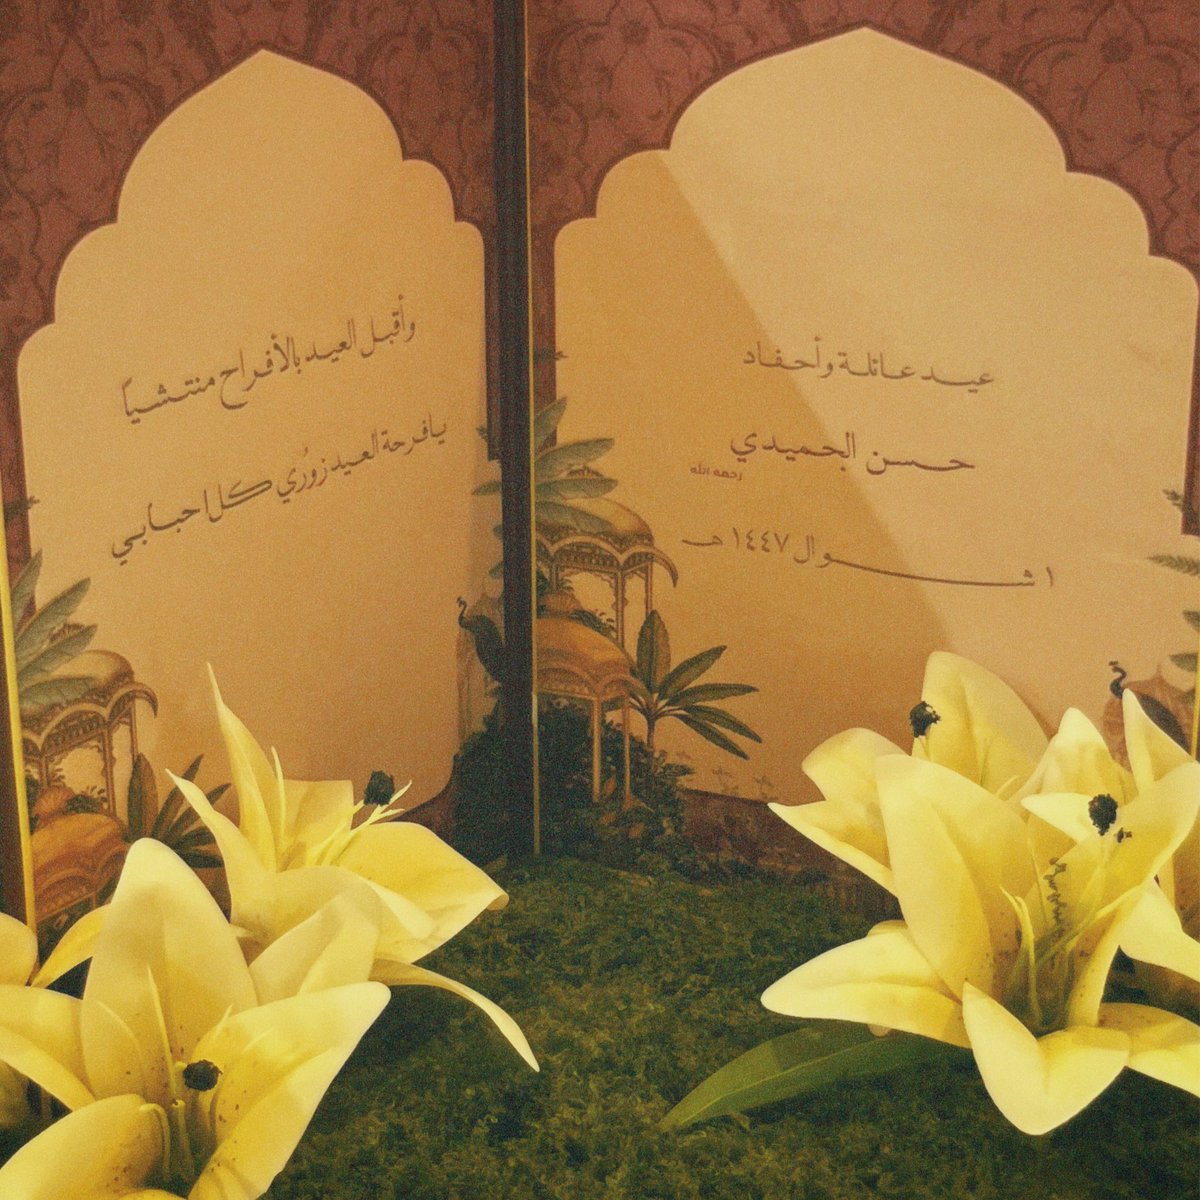 عيد عائلة وأحفاد
حسن الجميدي
رحمه الله
١ شوال ١٤٤٧ هـ
وأقبل العيد بالأفراح منتشياً
يا فرحة العيد زوُري كل احبابي